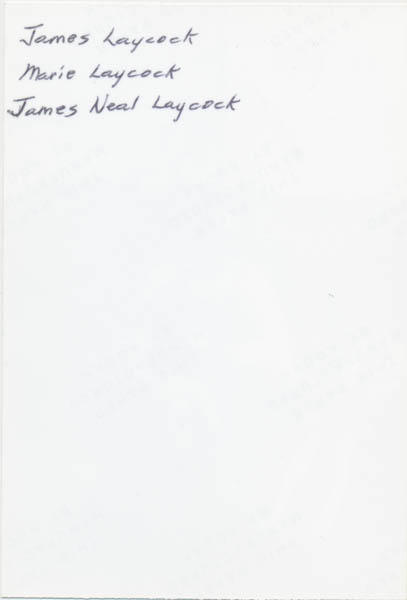 James Laycock
Marie Laycock
James Neal Laycock